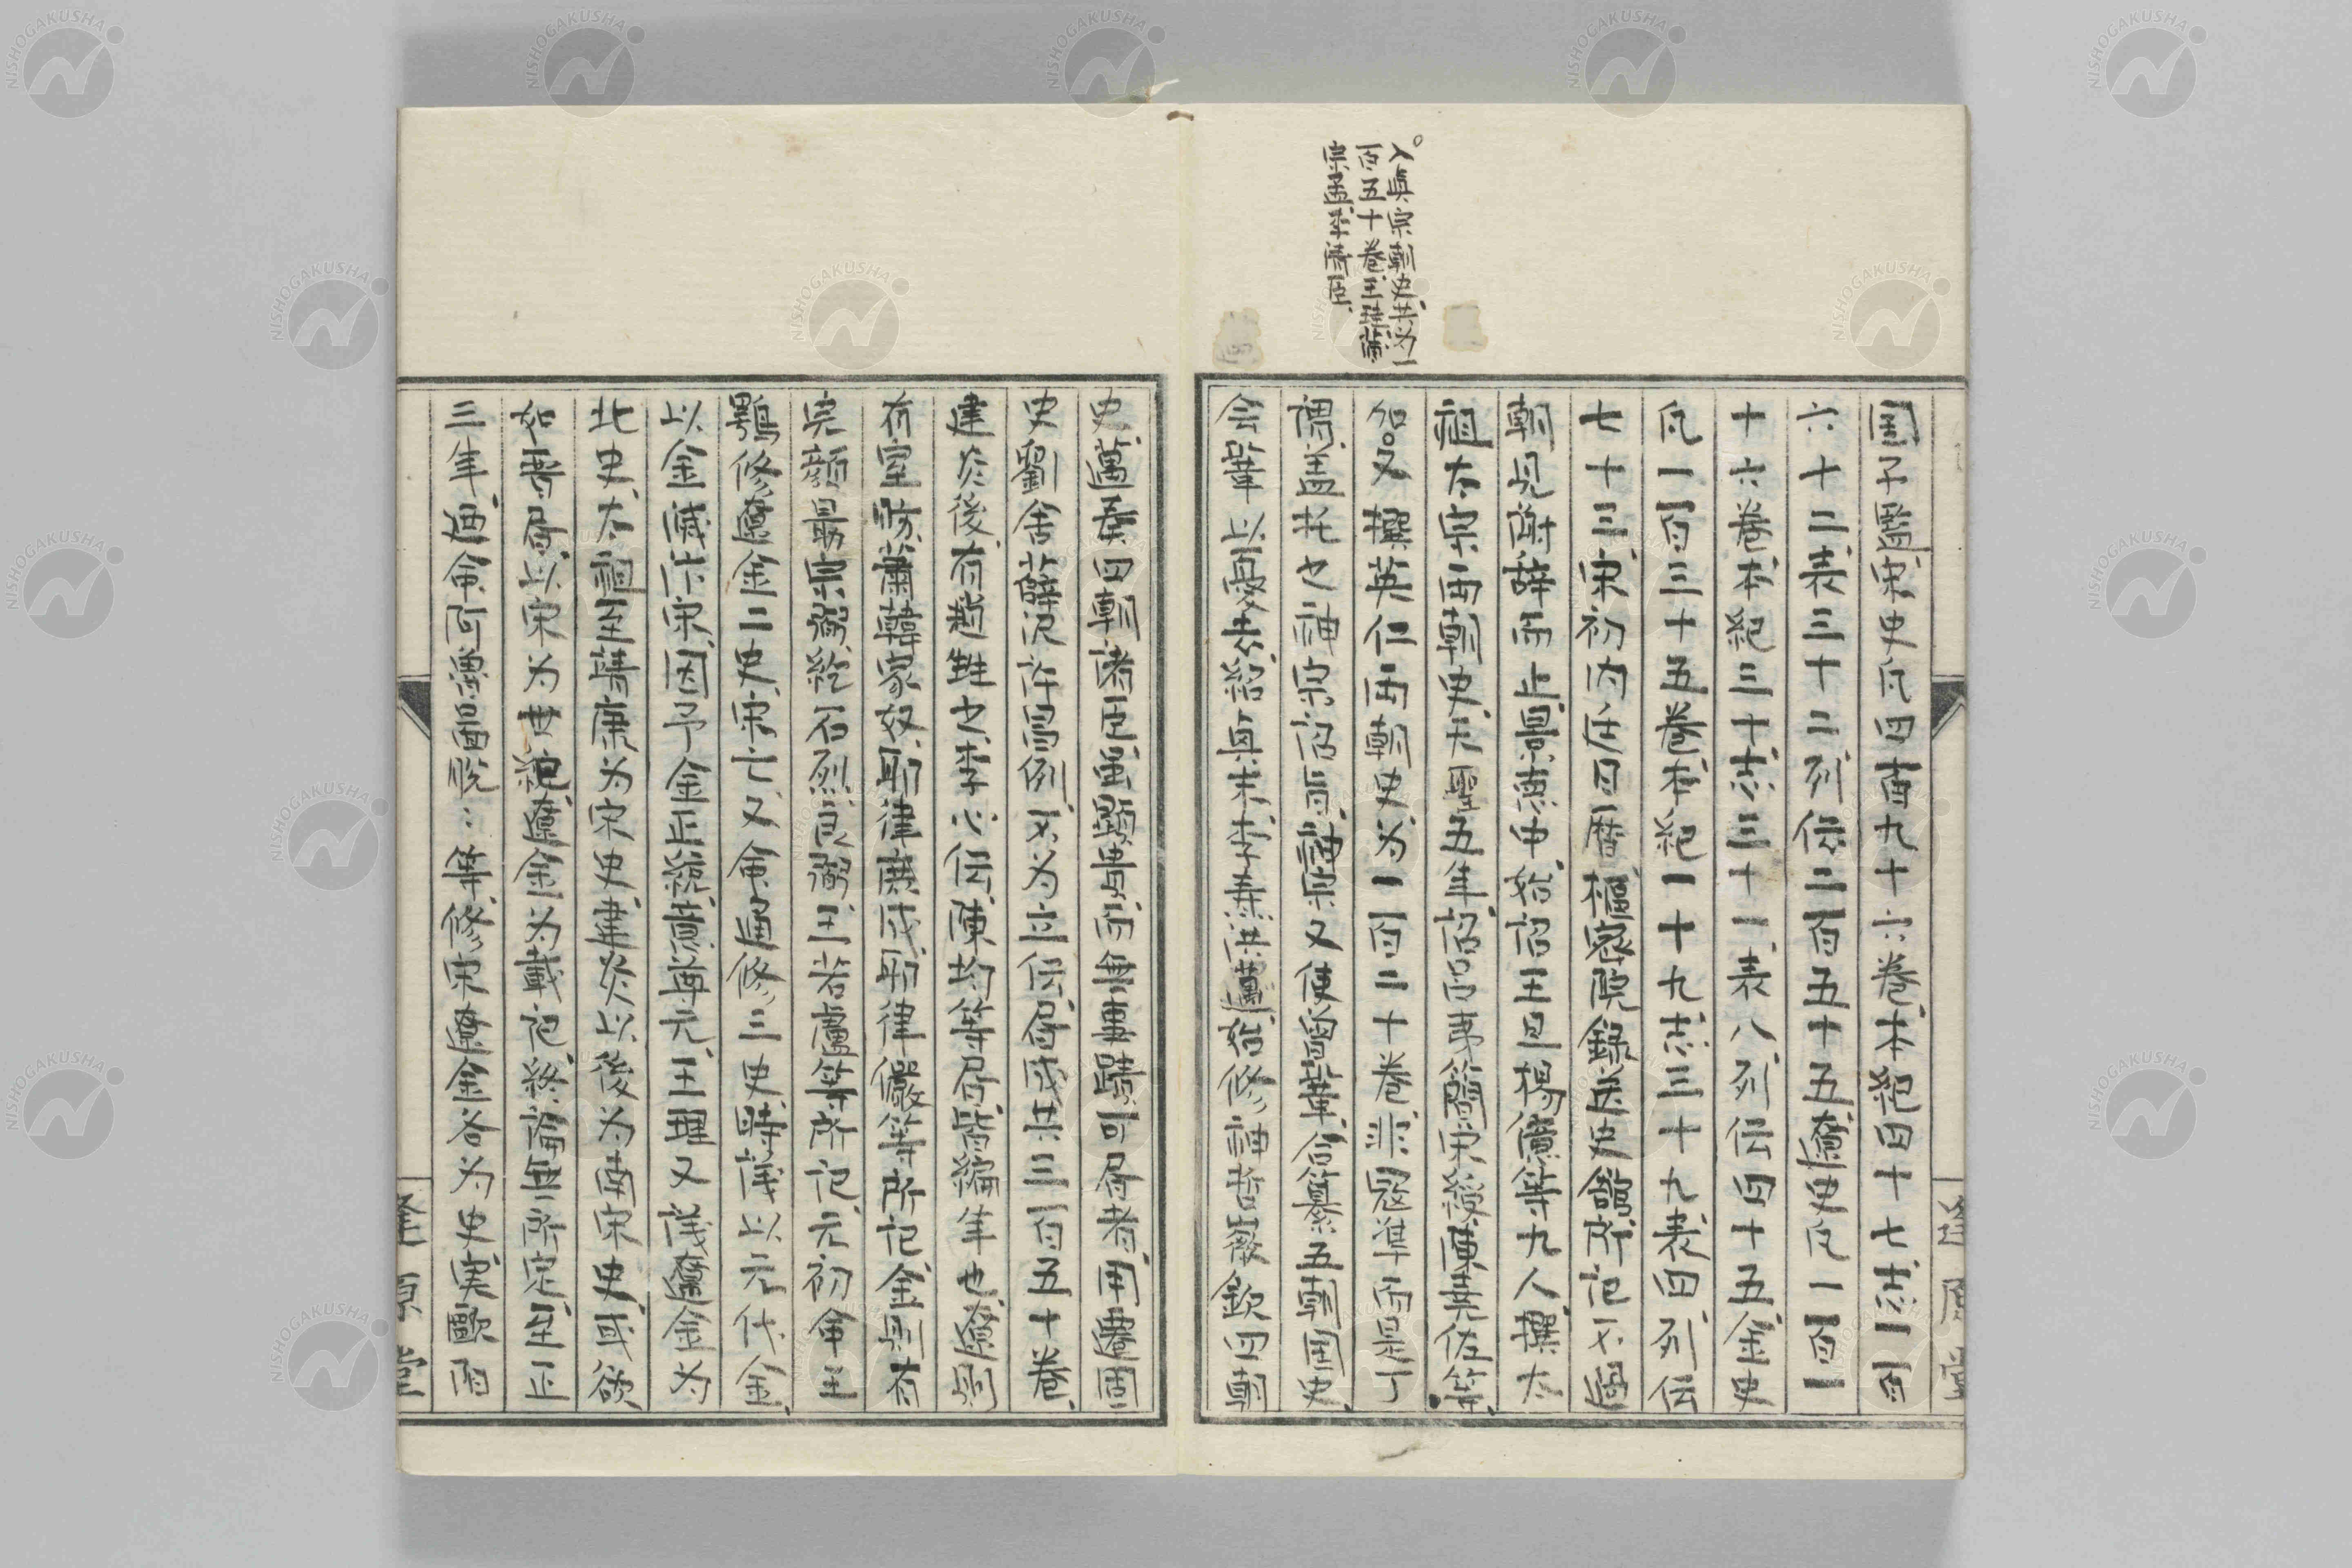 入真宗朝史共为一
百五十卷王珪蒲
宗孟李清臣
国子監宋史凡四百九十六卷本紀四十七志一百
六十二表三十二列伝二百五十五遼史凡一百一
十六卷本紀三十志三十一表八列伝四十五金史
凡一百三十五卷本紀一十九志三十九表四列伝
七十三宋初内庄日暦樞密院錄送史館所記不過
朝見謝辞而止景徳中始詔王旦楊億等九人撰太
祖太宗両朝史天聖五年詔呂夷簡宋綬陳堯佐等
加。又撰英仁両朝史为一百二十卷非寇準而是丁
謂盖托之神宗詔旨神宗又使曾鞏合纂五朝国史
会鞏以憂去紹興末李燾洪邁始修神哲徽欽四朝
史邁奏四朝諸臣虽顕貴而無事蹟可居者用遷固
史劉舍薛沢許昌例不为立伝居成共三百五十卷
建炎後有趙甡之李心伝陳均等居皆編年也遼則
有室昉蕭韓家奴耶律庶成耶律儼等所記金則有
完顔最宗弼紇石烈良弼王若虚等所記元初命王
鶚修遼金二史宋亡又命通修三史時議以元代金
以金滅汴宋因予金正統意尊元王理又議遼金为
北史太祖至靖康为宋史建炎以後为南宋史或欲
如晋居以宋为世紀遼金为載記終論無所定至正
三年廼命阿魯圖脱〻等修宋遼金各为史実歐陽
逢原堂